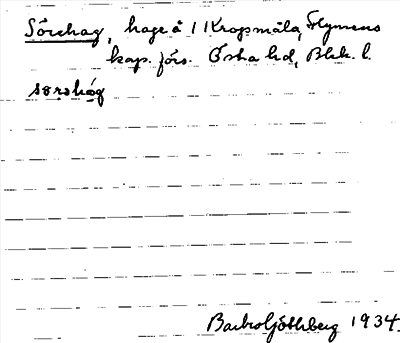 Sörehag, hage å 1 Kropsmåla, Flymens
kap. förs. Östra hd, Blek. l.
sørəhåg
Barbro Göthberg 1934.